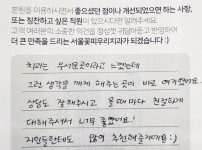 본원을 이용하시면서 좋으셨던 점이나 개선되었으면 하는 사항,
또는 칭찬하고 싶은 직원이 있으시다면 알려주세요.
고객 여러분의 소중한 의견을 정성껏 귀담아듣고 반영하여
더 큰 만족을 드리는 서울꽃피우리치과가 되겠습니다 :)
치과는 무서운곳이라고 느꼈는데
그런 생각을 깨게 해주는곳이 바로 여기였어요.
상담도 잘해주시고 올때마다 친절하게
대해주셔서 너무 좋았어요!
지인들한테도 많이 추천해줄거예요 :)